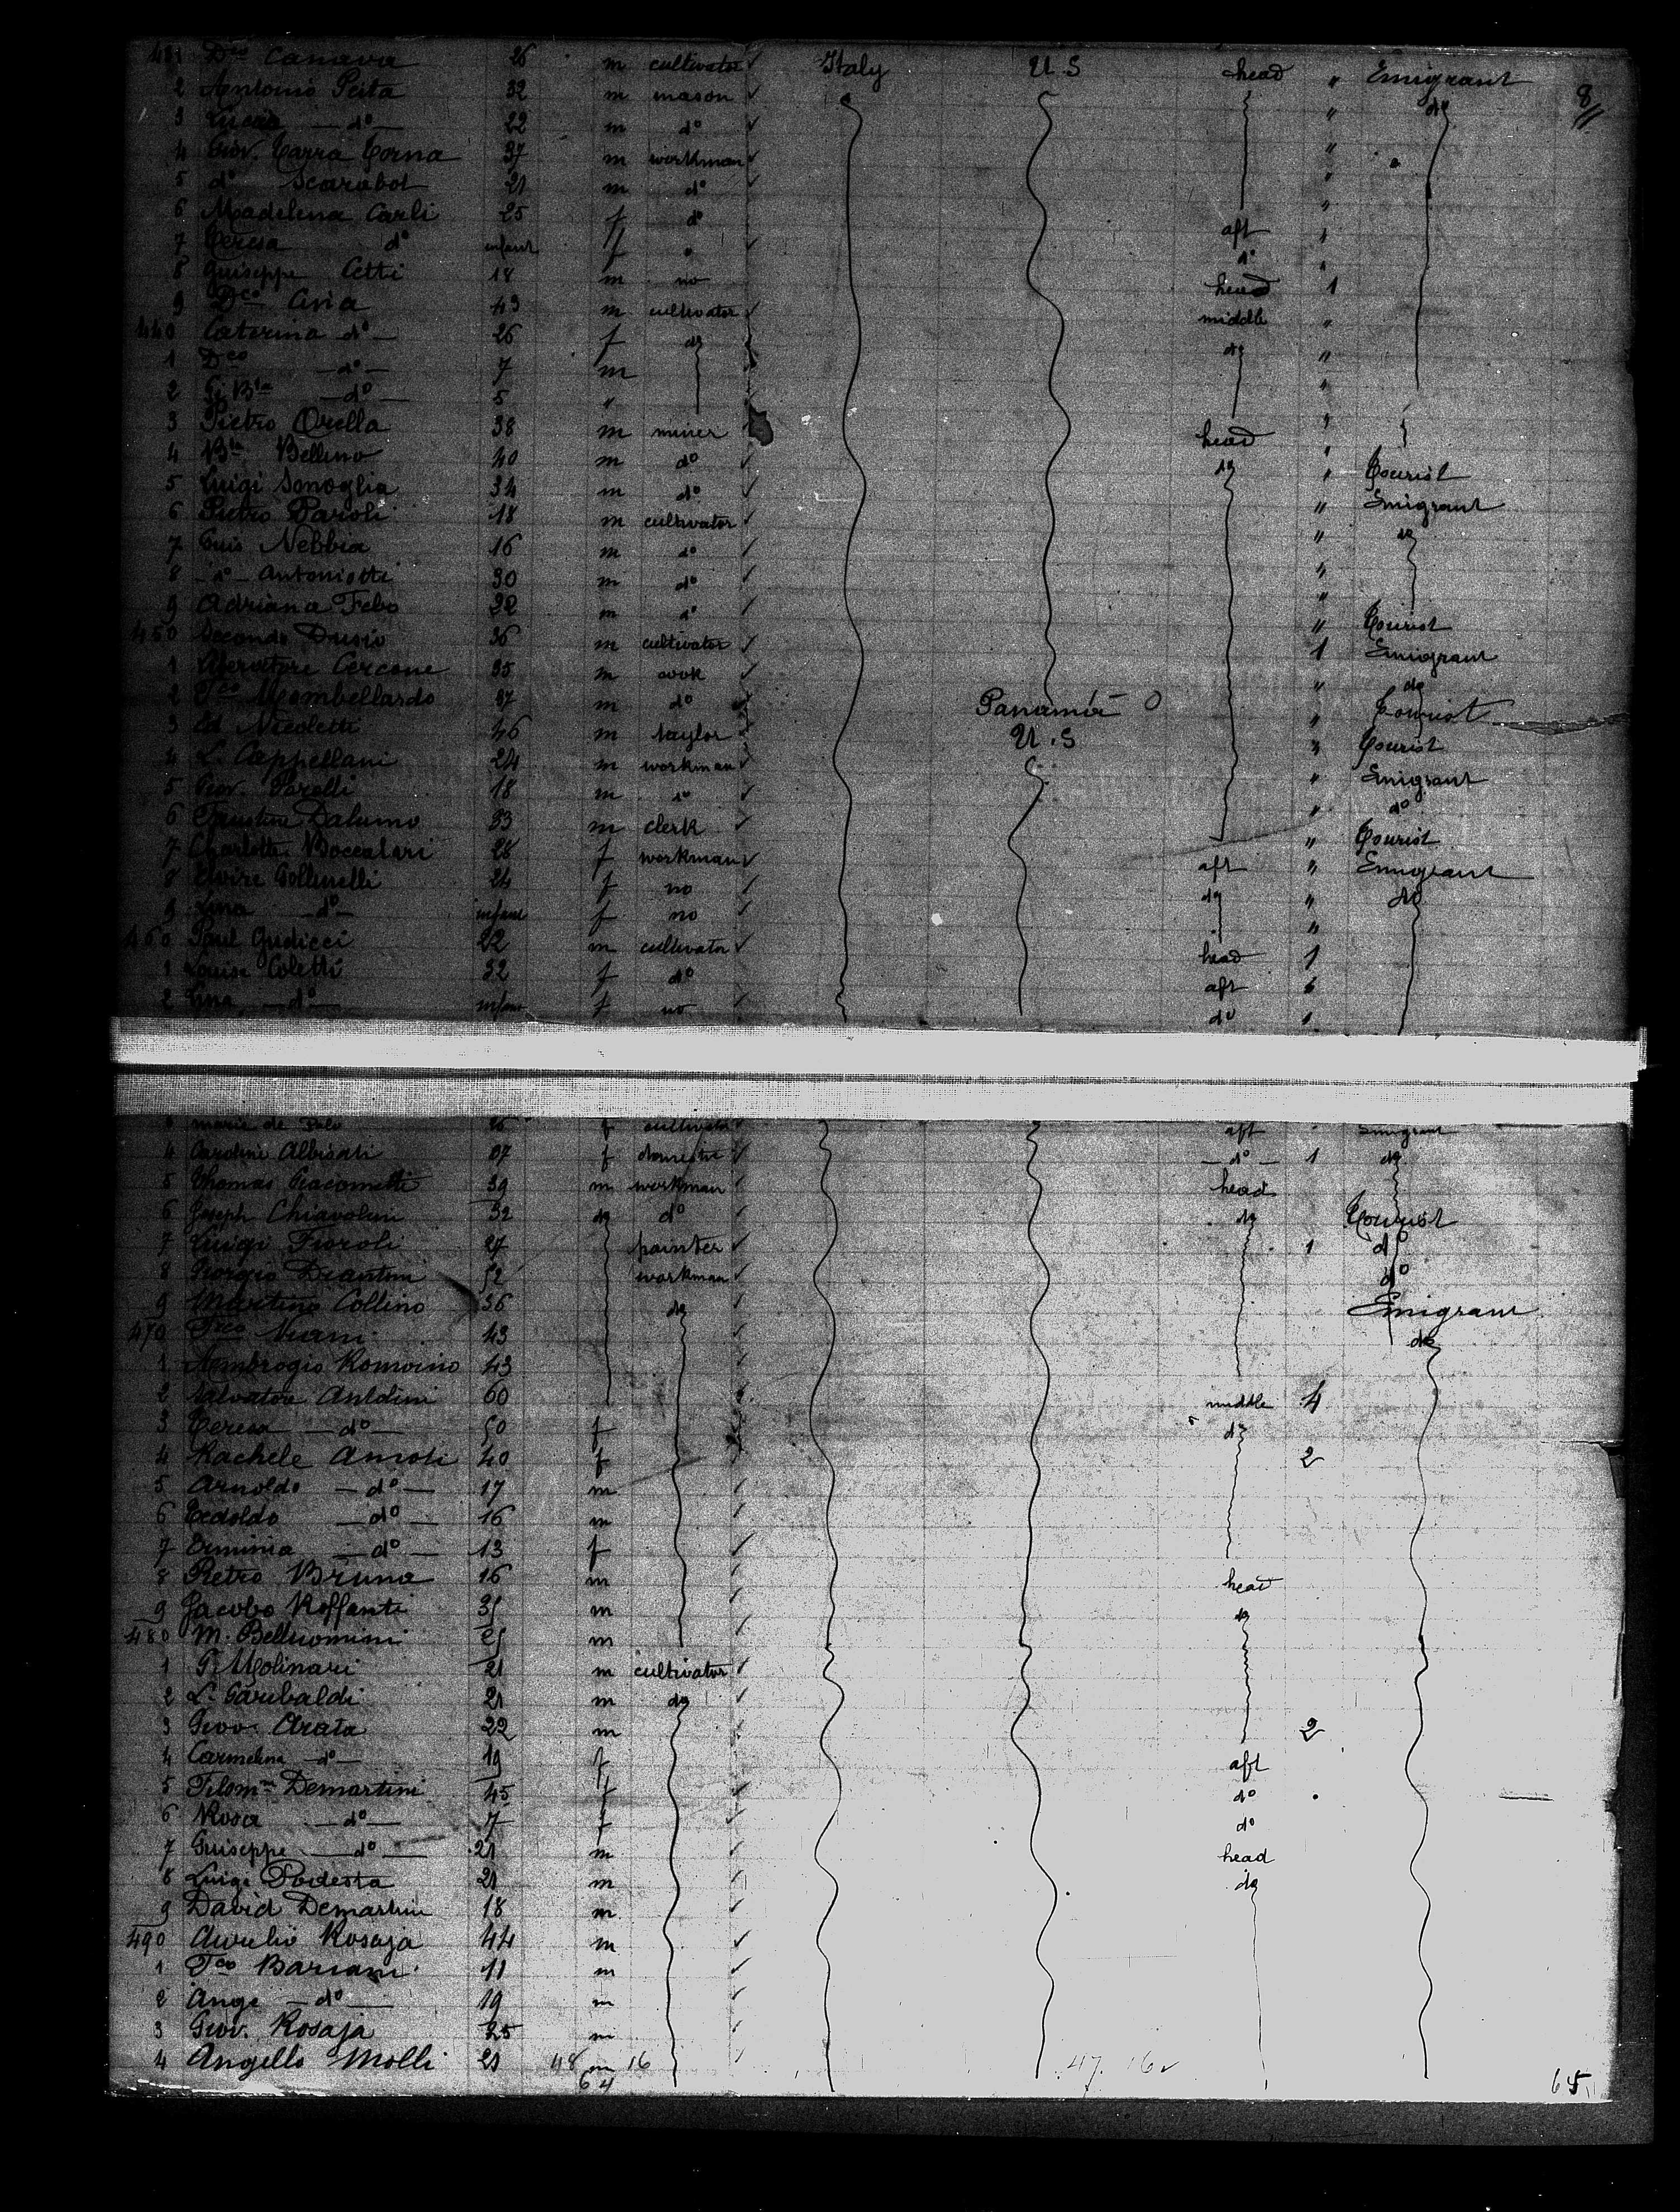 431 Dco Canava 26 m cultivator Italy U.S head " Emigrant 8
2 Antonio Peita 32 m mason " do
3 Lucia do 22 m do "
4 Giov. Carra Corna 37 m workman "
5 do Scarabot 21 m do "
6 Madelena Carli 25 f do aft
7 Teresa do infant f " do
8 Guiseppe Cetti 18 m no head 1
9 Dco Aria 43 m cultivator middle "
440 Caterina do 26 f do do "
1 Dco do 7 m "
2 Gi Bta do 5 " "
3 Pietro Orella 38 m miner head
4 Bta Bellino 40 m do do " Tourist
5 Luigi Sonoglia 34 m do " Emigrant
6 Pietro Paroli 18 m cultivator " do
7 Luis Nebbia 16 m do "
8 do Antoniotti 30 m do "
9 Adriana Febo 32 m do " Tourist
450 Secondo Dusio 36 m cultivator 1 Emigrant
1 Cercone 35 m cook " do
2 Fco Mombellardo 37 m do Panamá O " Tourist
3 Ed. Nicoletti 46 m taylor U.S " Tourist
4 L. Cappellani 24 m workman " Emigrant
5 Giov. Parelli 18 m do " do
6 Faustino Dalumo 33 m clerk " Tourist
7 Charlotte Boccalari 28 f workman aft " Emigrant
8 Elvire Gollinelli 24 f no do " do
9 Lina do infant f no "
460 Paul Gudicci 22 m cultivator head 1
1 Louise Coletti 32 f do aft
2 Lina do infant f no do 1
3 Marie de Polo 26 f cultivator aft Emigrant
4 Caroline Albisati 37 f domestic do 1 do
5 Thomas Giacometti 39 m workman head
6 Joseph Chiavolini 32 do do do Tourist
7 Luigi Fioroli 27 painter 1 do
8 Giorgio Diantoni 52 workman do
9 Martino Collino 36 do Emigrant
470 Fco Viani 43 do
1 Ambrogio Romoino 43
2 Salvatore Anldini 60 middle 4
3 Teresa do 50 f do
4 Rachele Amoti 40 f 2
5 Arnoldo do 17 m
6 Tedoldo do 16 m
7 Erminia do 13 f
8 Pietro Bruna 16 m head
9 Jacobo Roffanti 35 m do
480 M. Belluomini 25 m
1 P. Molinari 21 m cultivator
2 L. Garibaldi 21 m do
3 Giov. Arata 22 m 2
4 Carmelina do 19 f aft
5 Filomna Demartini 45 f do
6 Rosa do 7 f do
7 Guiseppe do 21 m head
8 Luigi Podesta 21 m do
9 David Demartini 18 m
490 Aurelio Rosaja 44 m
1 Fco Bariani 11 m
2 Ange do 19 m
3 Giov. Rosaja 25 m
4 Angello Molli 21 48 m 16 47. 16
64 65